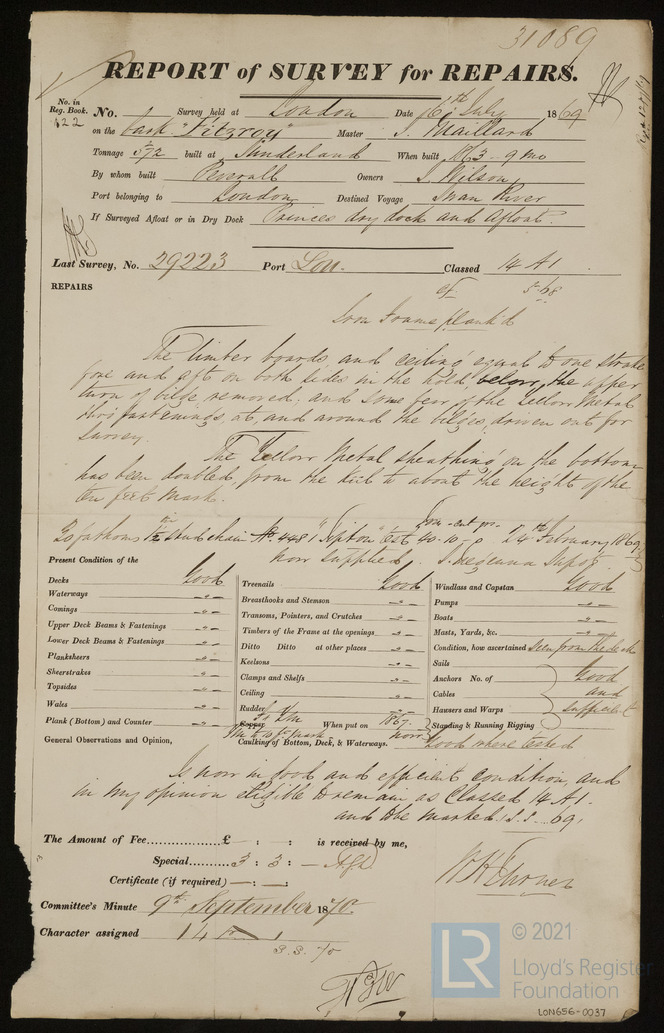 31089
REPORT of SURVEY for REPAIRS.
No. in Reg. Book.
122
No. Survey held at London Date 16th July 1869
on the bark "Fitzroy" Master J. Maillard
Tonnage 572 built at Sunderland When built 1863 - 9 mo
By whom built Peverall Owners J. Wilson
Port belonging to London Destined Voyage Swan River
If Surveyed Afloat or in Dry Dock Princes dry dock and afloat.
Last Survey, No. 29223 Port Lon. Classed 14 A1
5.68
REPAIRS
Iron Frame plank'd
The limber boards and ceiling equal to one strake
fore and aft on both sides in the hold, below, the upper
turn of bilge removed, and some few of the Yellow Metal
fastenings at, and around the bilges, driven out for
survey.
The Yellow Metal sheathing on the bottom
has been doubled, from the keel to about the height of the
ten feet mark.
fathoms stud chain No. 448 "Tipton" 40.10. 24th February 1869
now supplied.
Present Condition of the
Decks Good
Waterways -"-
Comings -"-
Upper Deck Beams & Fastenings -"-
Lower Deck Beams & Fastenings -"-
Planksheers -"-
Sheerstrakes -"-
Topsides -"-
Wales -"-
Plank (Bottom) and Counter -"-
Treenails Good
Breasthooks and Stemson -"-
Transoms, Pointers, and Crutches -"-
Timbers of the Frame at the openings -"-
Ditto Ditto at other places -"-
Keelsons -"-
Clamps and Shelfs -"-
Ceiling -"-
Rudder -"-
Copper When put on 1867
Caulking of Bottom, Deck, & Waterways. now
Windlass and Capstan Good
Pumps -"-
Boats -"-
Masts, Yards, &c. -"-
Condition, how ascertained seen from the deck
Sails
Anchors No. of Good
Cables and
Hawsers and Warps sufficient
Standing & Running Rigging
Good where tested
General Observations and Opinion,
Is now in good and efficient condition, and
in my opinion eligible to remain as Classed 14 A1.
and to be marked S.S. 69,
The Amount of Fee..................£ - : - : is received by me,
Special.........3 : 3 : -
Certificate (if required) — : — :
Committee's Minute 9th September 1870.
Character assigned 14 A 1
S.S. 70
LR
© 2021
Lloyd's Register
Foundation
LON656-0037